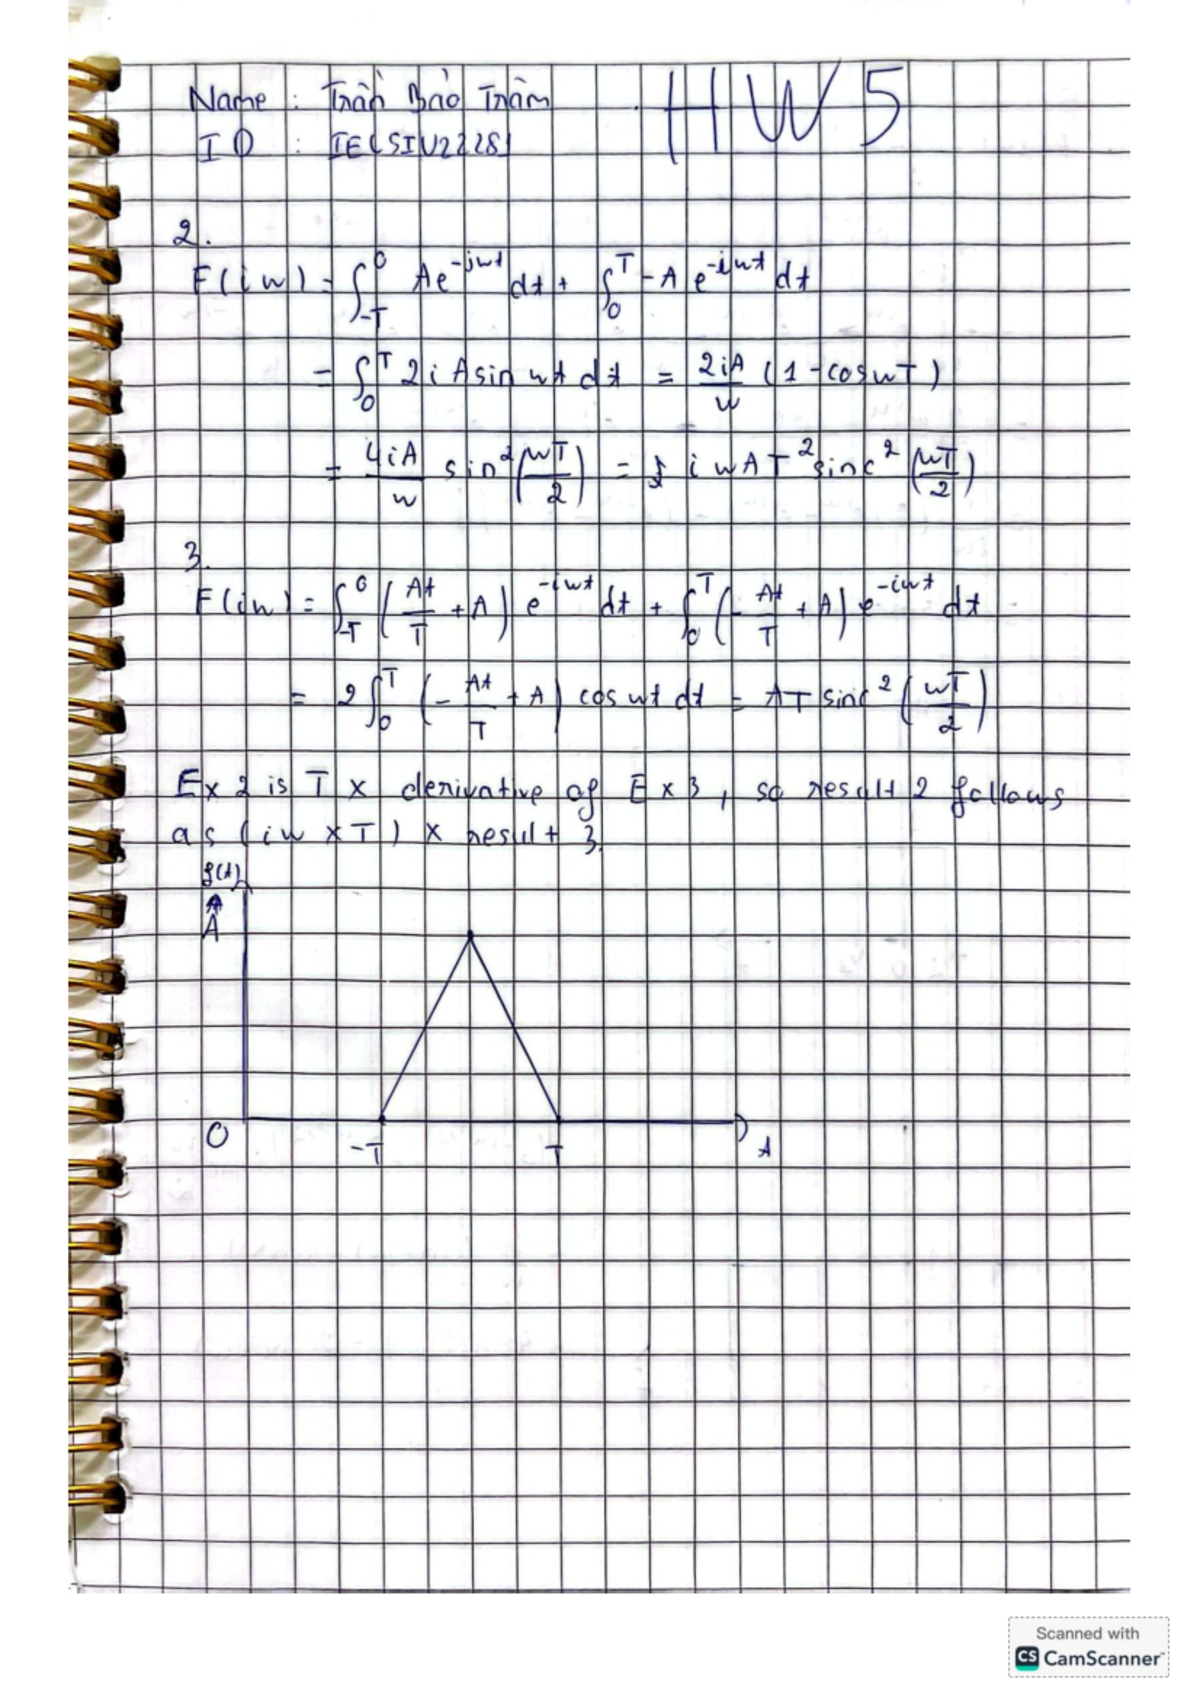 Name : Trần Bảo Trâm
HW 5
ID : IELSIU22281
2.
F(iw) = ∫_{-T}^{0} Ae^{-jwt} dt + ∫_{0}^{T} -A e^{-iwt} dt
= ∫_{0}^{T} 2iA sin wt dt = 2iA/w (1 - cos wT)
= 4iA/w sin²(wT/2) = i w A T² sinc²(wT/2)
3.
F(iw) = ∫_{-T}^{0} (At/T + A) e^{-iwt} dt + ∫_{0}^{T} (-At/T + A) e^{-iwt} dt
= 2∫_{0}^{T} (-At/T + A) cos wt dt = AT sinc²(wT/2)
Ex 2 is T x derivative of Ex 3, so result 2 follows
as (iw x T) x result 3.
f(t)
A
O
-T
T
t
Scanned with
CS CamScanner